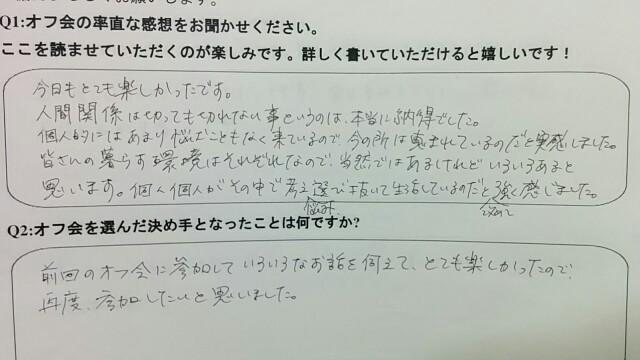 Q1:オフ会の率直な感想をお聞かせください。
ここを読ませていただくのが楽しみです。詳しく書いていただけると嬉しいです！
今日もとても楽しかったです。
人間関係は切ってもくれない事というのは、本当に納得でした。
個人的にはあまり悩むこともなく来ているので、今の所は恵まれているのだと実感しました。
皆さんの暮らす環境はそれぞれなので、当然ではあるけれど いろいろあると
思います。個人個人がその中で考え選び抜いて生活しているのだと強く感じました。
悩み 改めて
Q2:オフ会を選んだ決め手となったことは何ですか?
前回のオフ会に参加していろいろなお話を伺えて、とても楽しかったので、
再度、参加したいと思いました。